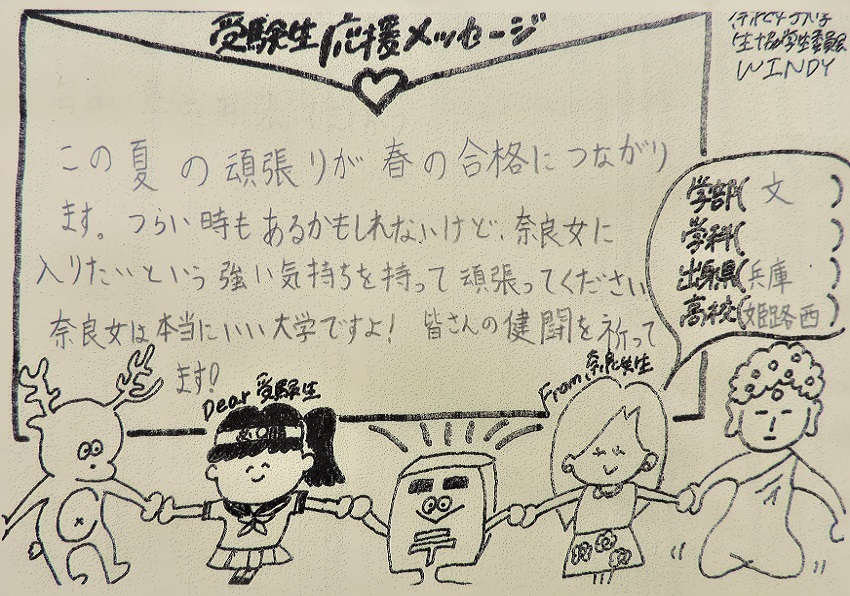 受験生応援メッセージ
生協学生委員会
WINDY
この夏の頑張りが春の合格につながり
ます。つらい時もあるかもしれないけど、奈良女に
入りたいという強い気持ちを持って頑張ってください
奈良女は本当にいい大学ですよ！ 皆さんの健闘を祈って
ます！
学部(文)
学科( )
出身県(兵庫)
高校(姫路西)
Dear 受験生
From 奈良女生
〒